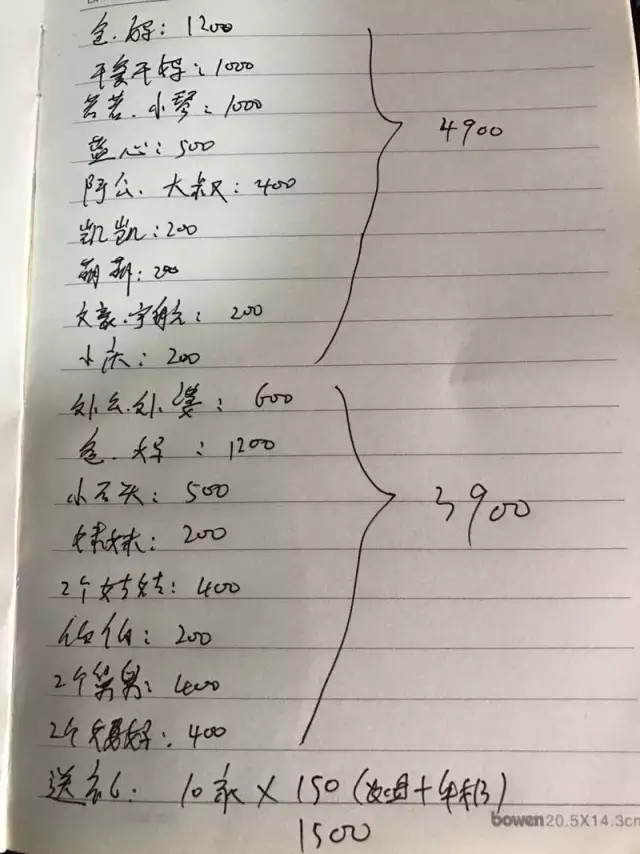 爸.妈：1200
干爹干妈：1000
小琴：1000
蓝心：500
阿公、大叔：400
凯凯：200
萌萌：200
文豪.宇航：200
小庆：200
4900
外公.外婆：600
爸.妈：1200
小石头：500
妹妹：200
2个姑姑：400
伯伯：200
2个舅舅：400
2个：400
3900
送礼：10家×150(烟+年糕)
1500
bowen20.5X14.3cm